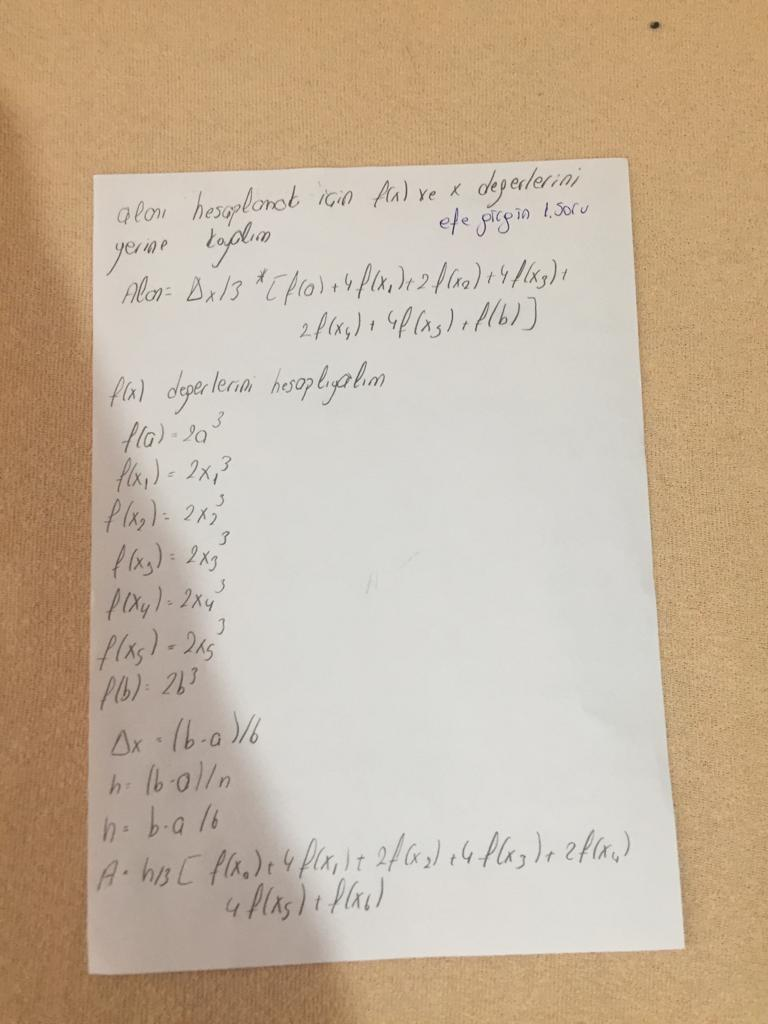 alanı hesaplamak için f(x) ve x değerlerini
efe girgin 1.soru
yerine koyalım
Alan = Δx/3 * [f(a) + 4f(x₁) + 2f(x₂) + 4f(x₃) +
2f(x₄) + 4f(x₅) + f(b)]
f(x) değerlerini hesaplıyalım
f(a) = 2a³
f(x₁) = 2x₁³
f(x₂) = 2x₂³
f(x₃) = 2x₃³
f(x₄) = 2x₄³
f(x₅) = 2x₅³
f(b) = 2b³
Δx = (b-a)/6
h = (b-a)/n
h = b-a /6
A = h/3 [ f(x₀) + 4f(x₁) + 2f(x₂) + 4f(x₃) + 2f(x₄)
4f(x₅) + f(x₆)